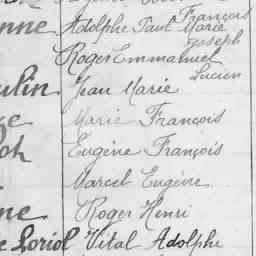 nne Adolphe Paul Marie François
Joseph
Roger Emmanuel
Lucien
ulin Jean Marie
Marie François
Eugène François
Marcel Eugène
ne Roger Henri
e Loriol Vital Adolphe